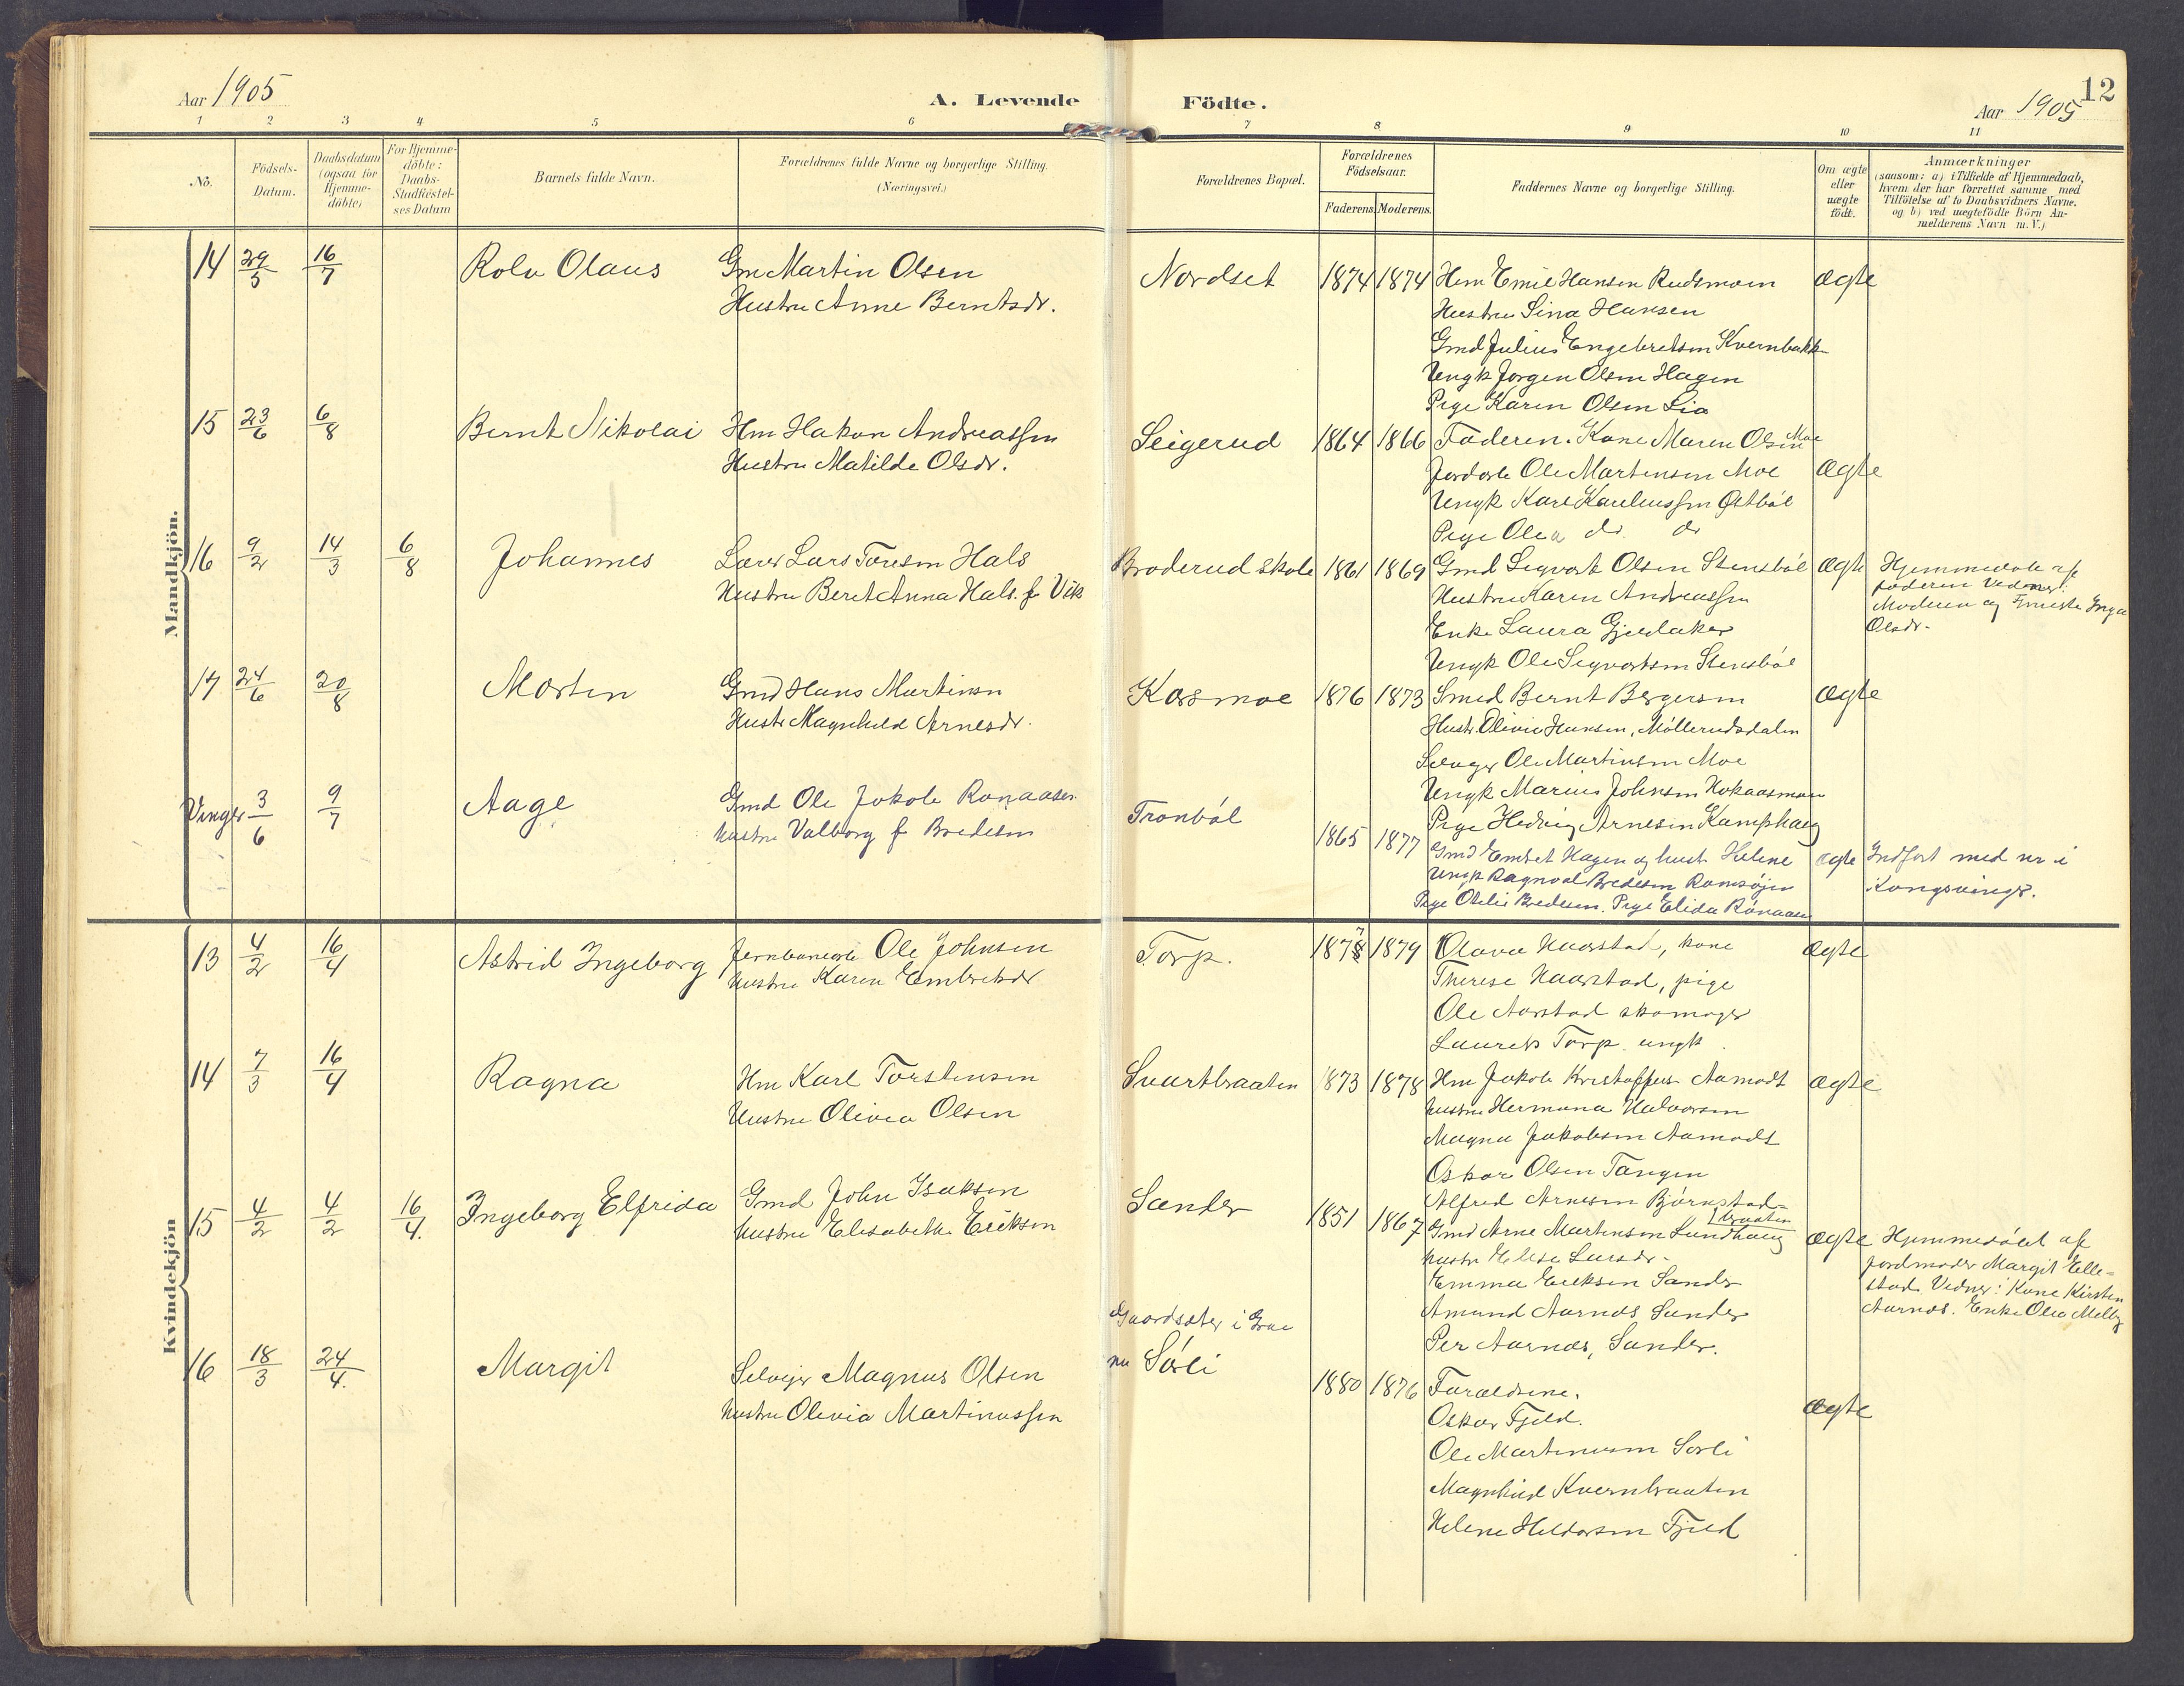 Aar 1905
A. Levende Födte.
Aar 1905
12
1 2 3 4 5 6 7 8 9 10 11
No.
Födsels-Datum.
Daabsdatum (ogsaa for Hjemme-döbte)
For Hjemme-döbte: Daabs-Stadfæstel-ses Datum
Barnets fulde Navn.
Forældrenes fulde Navne og borgerlige Stilling.
(Næringsvei.)
Forældrenes Bopæl.
Forældrenes Födselsaar.
Faderens. Moderens.
Faddernes Navne og borgerlige Stilling.
Om ægte eller uægte födt.
Anmærkninger
(saasom: a) i Tilfælde af Hjemmedaab,
hvem der har forrettet samme med
Tilföielse af to Daabsvidners Navne.
og b) ved uægtefödte Börn An-
melderens Navn m. V.)
Mandkjön.
14 29/5 16/7 Rolv Olaus
Gm Martin Olsen
Hustru Anne Berntsdr.
Nordset 1874 1874
Hm Emil Hansen Rudsmoen
Hustru Lina Hansen
Gmd Julius Engebretsen Kvernbakk
Ungk Jørgen Olsen Hagen
Pige Karen Olsen Lia
ægte
15 23/6 6/8 Bernt Nikolai
Hm Hakon Andreassen
Hustru Matilde Olsdr.
Seigerud 1864 1866
Faderen. Kone Maren Olsen Moe
Jordarb Ole Martinsen Moe
Ungk Karl Kareliussen Østbøl
Pige Olea do. do
ægte
16 9/2 14/3 6/8 Johannes
Lærer Lars Toresen Hals
Hustru Beret Anna Hals. f Vik
Broderud skole 1861 1869
Gmd Sigvart Olsen Stensbøl
Hustru Karen Andreassen
Enke Laura Gjerdaker
Ungk Ole Sigvartsen Stensbøl
ægte
Hjemmedøbt af
faderen Vedner:
Moderen og Inga
Olsdr.
17 24/6 20/8 Morten
Gmd Hans Martinsen
Hustr Magnhild Arnesdr.
Kosmoe 1876 1873
Smed Bernt Bergersen
Hustr. Olivia Hansen, Møllerudsdalen
Selveger Ole Martinsen Moe
Ungk Marius Johnsen Hokaasmoen
Pige Hedvig Arnesen Kamphaug
ægte
Vinger 3/6 9/7 Aage
Gmd Ole Jakob Ronaasen
hustru Valborg f Bredesen
Tronbøl 1865 1877
Gmd Embret Hagen og hust. Helene
Ungk Ragnval Bredesen Ramsøjen
Pige Otelie Bredesen. Pige Elida Rønaasen
ægte
Indført med nr i
Kongsvinger.
Kvindekjön
13 4/2 16/4 Astrid Ingeborg
Jernbanearb Ole Johnsen
hustru Karen Embretsdr
Torp. 1878 7 1879
Olava Haarstad, kone
Therese Haarstad, pige
Ole Aarstad skomager
Laurits Torp. ungk.
ægte
14 7/3 16/4 Ragna
Hm Karl Torstensen
Hustru Olivia Olsen
Svartbraaten 1873 1878
Hm Jakob Kristoffers Aamodt
hustru Hermana Halvorsen
Magna Jakobsen Aamodt
Oskar Olsen Tangen
Alfred Arnesen Bjørnstad-
braaten
ægte
15 4/2 4/2 16/4. Ingeborg Elfrida
Gmd John Isaksen
hustru Elisabeth Eriksen
Sander 1851 1867
Gmd Arne Martinsen Sundhaug
hustr Larsdr.
Emma Eriksen Sander
Amund Aarnæs Sander
Per Aarnæs, Sander.
ægte
Hjemmedøbt af
jordmoder Margit Elle-
stad Vedner: Kone Kirsten
Aarnæs. Enke Olea Melby
16 18/3 24/4. Margit
Selveier Magnus Olsen
hustru Olivia Martinussen
Gaardsæter i Grue
nu Sørli 1880 1876
Forældrene.
Oskar Fjeld.
Ole Martinussen Sørli
Magnhild Kvernbraaten
Helene Haldorsen Fjeld
ægte